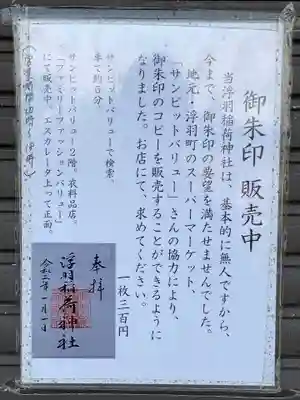 御朱印 販売中
当浮羽稲荷神社は、基本的に無人ですから、
今まで、御朱印の要望を満たせませんでした。
地元・浮羽町のスーパーマーケット、
「サンピットバリュー」さんの協力により、
御朱印のコピーを販売することができるように
なりました。お店にて、求めてください。
一枚三百円
サンピットバリューで検索、
車で約5分。
サンピットバリュー2階。衣料品店。
「ファミリーファッションバリュー」
にて販売中。エスカレータ上って正面。
奉拝
浮羽稲荷神社
令和三年一月一日